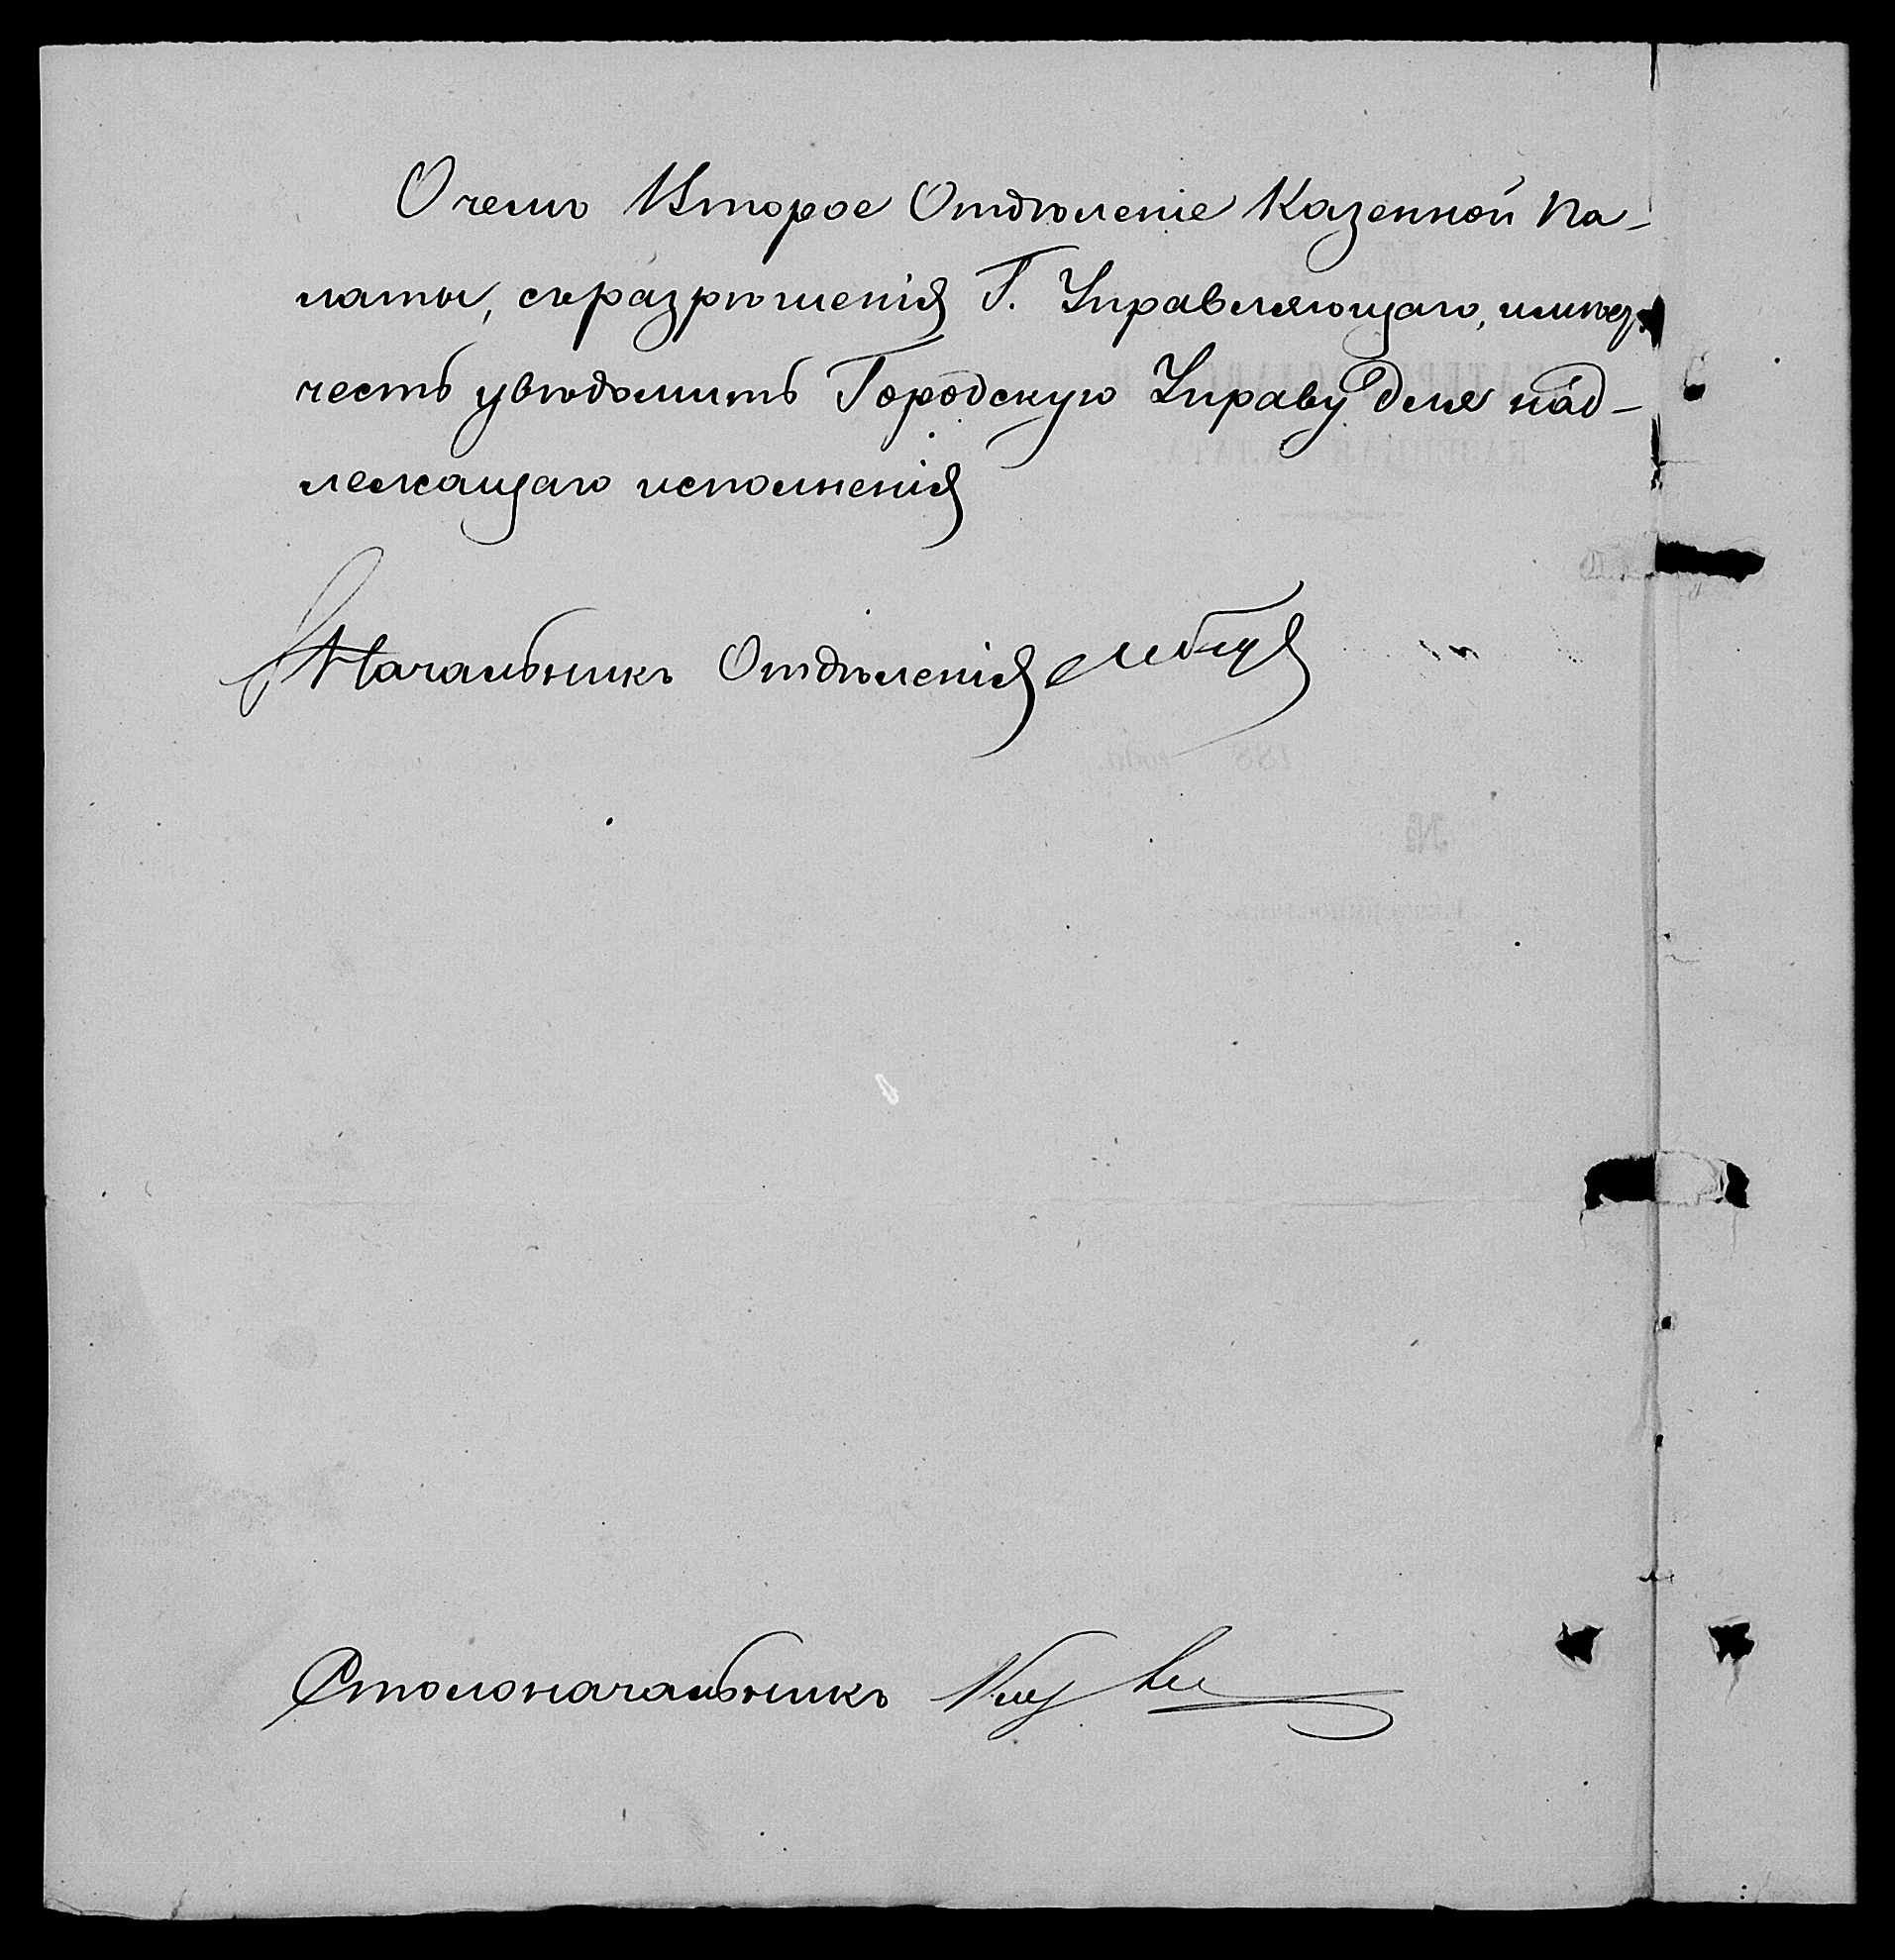 О чемъ Второе Отдѣленіе Казенной Па-
латы, съ разрѣшенія Г. Управляющаго, имѣетъ
честь увѣдомить Городскую Управу для над-
лежащаго исполненія
Начальникъ Отдѣленія
188 года.
№
Столоначальникъ